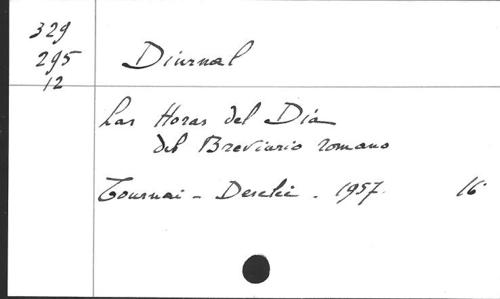 329
295
12
Diurnal
Las Horas del Dia
del Breviario romano
Tournai - Desclée . 1957. 16º